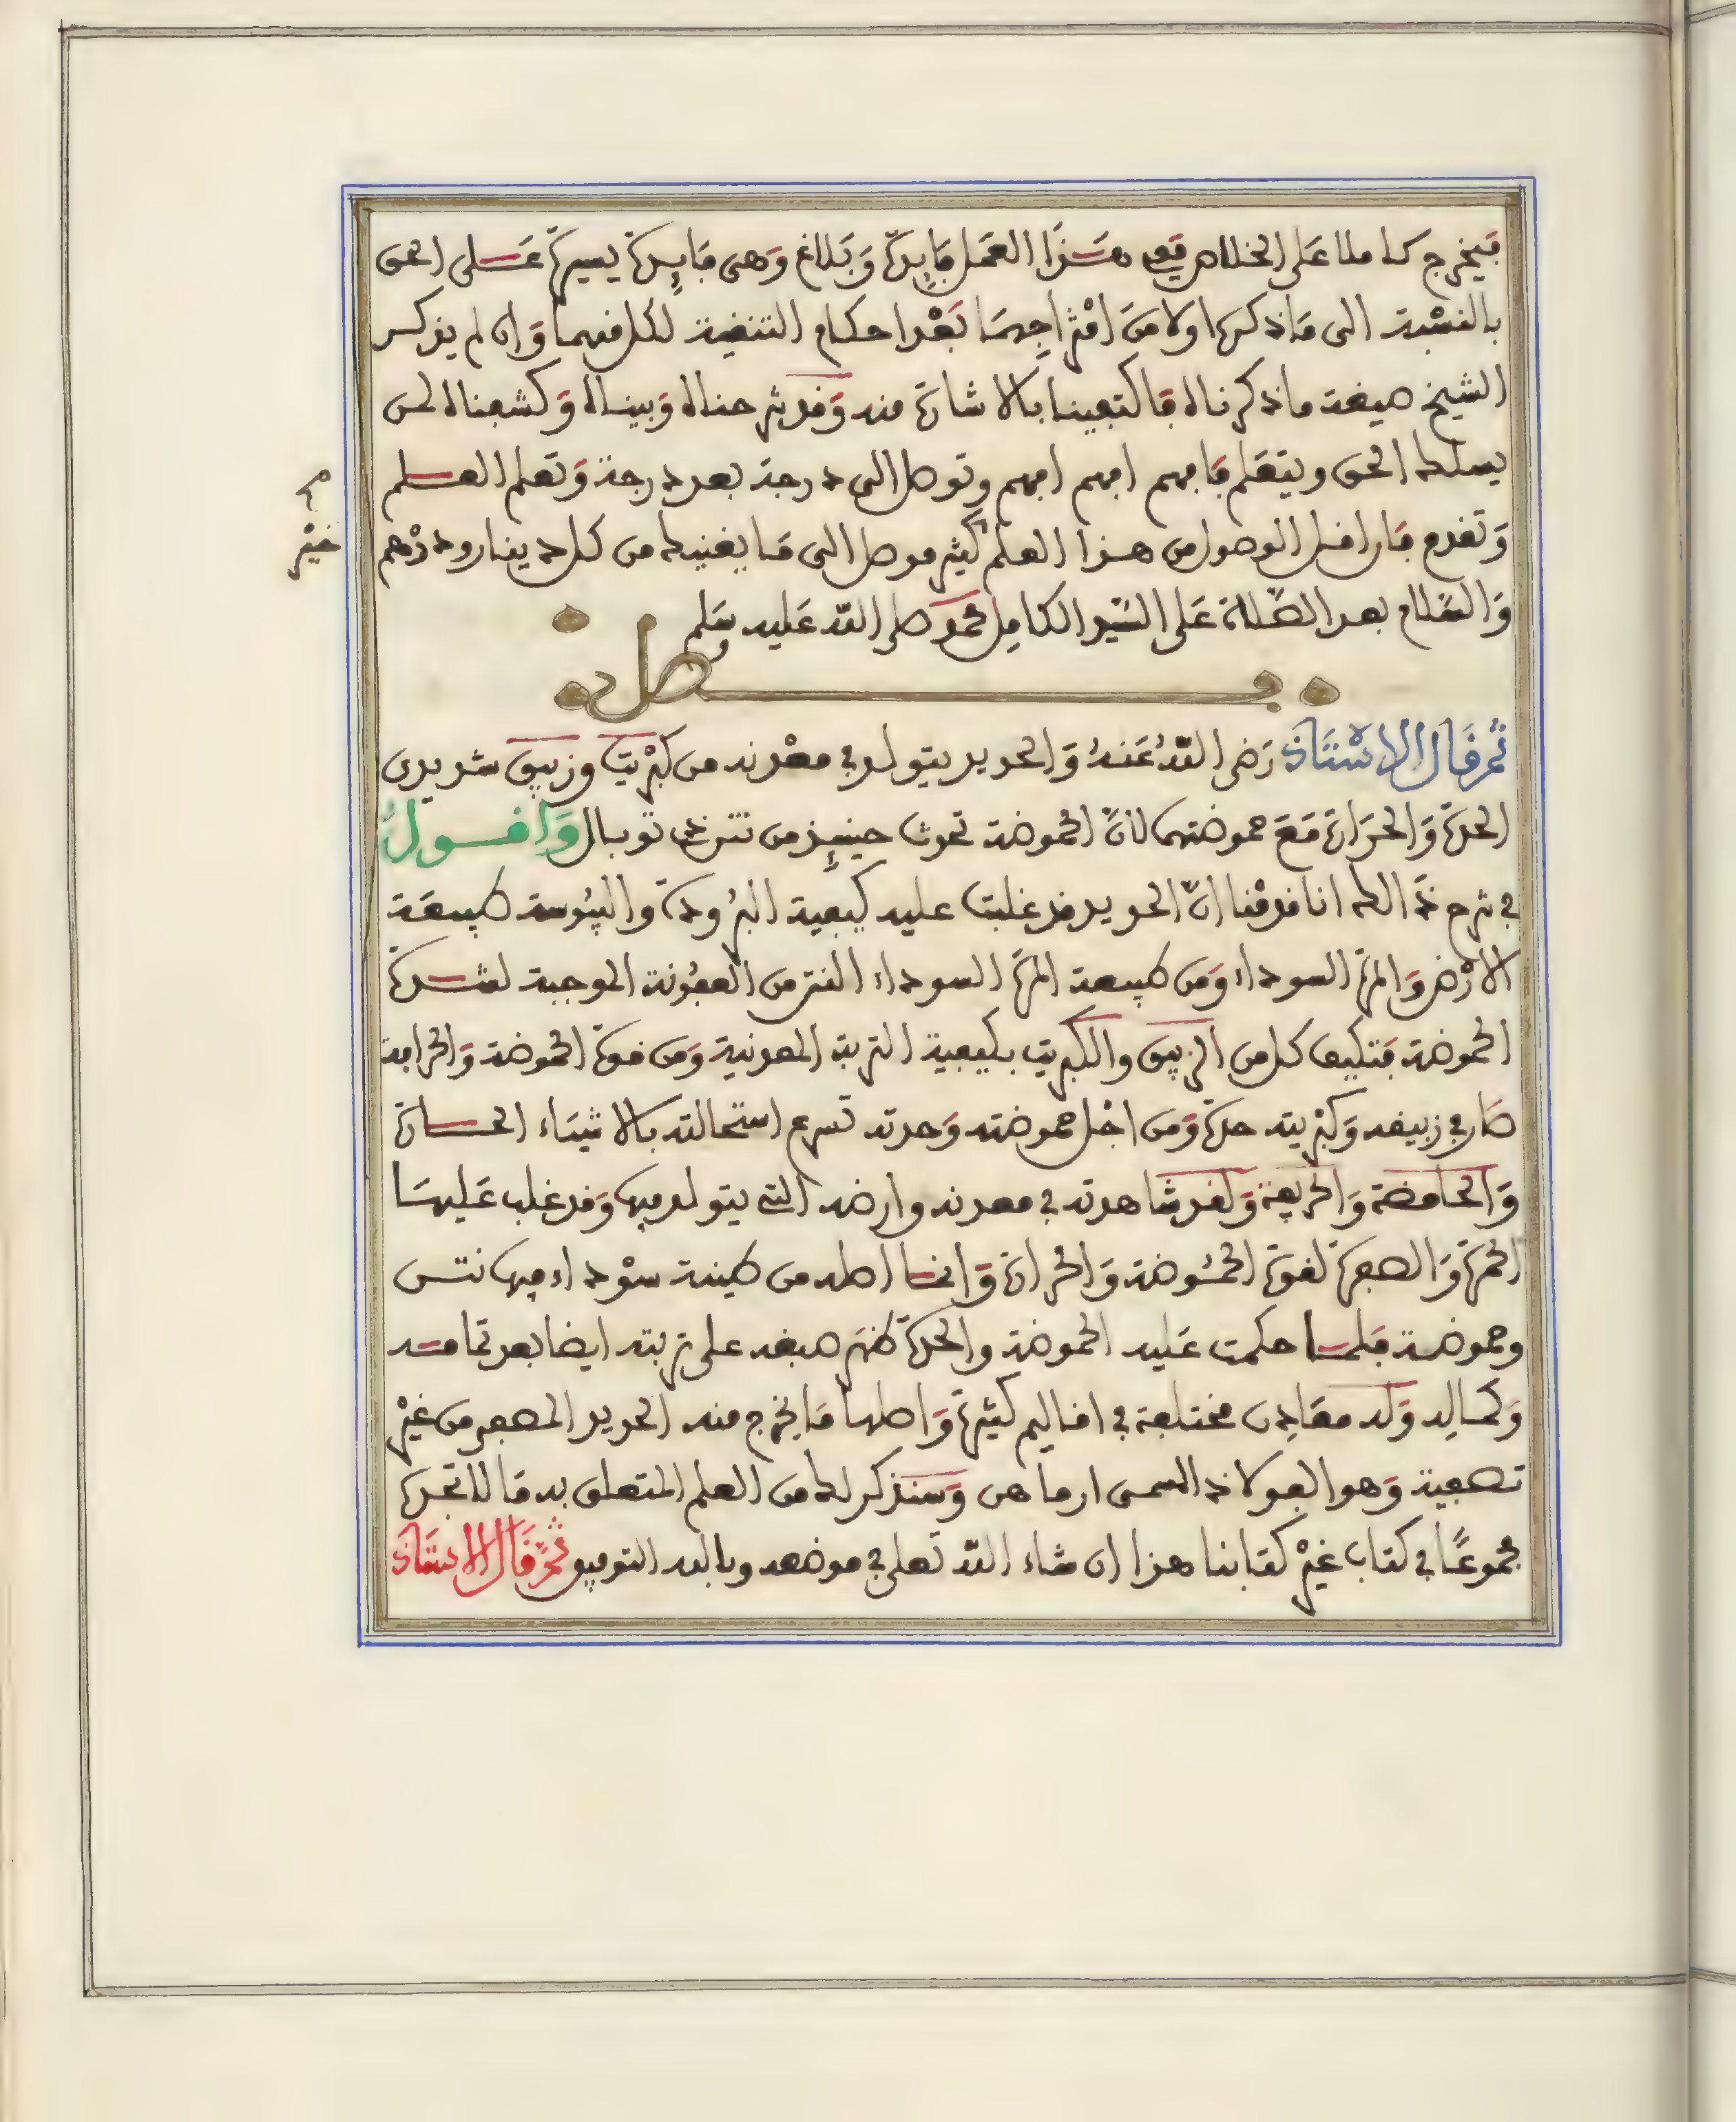 فيخرج كاملا على الخلاص ففي هذا العمل فايدة وبلاغ وهي فايدة يسيرة على الحق
بالنسبة الى ماذكرها اولا من امتزاجهما بعد احكام التنقية لكل منهما وان لم يذكر
الشيخ صيغة ماذكرناه فاكتفينا بالاشارة منه وقد شرحناه وبيناه وكشفناه لمن
يسلك الحق ويتعلم فافهم افهم افهم وتوصل الى درجة بعد درجة وتعلم العلم
وتقدم فان اقل الوصول من هذا العلم كثير موصل الى ما يغنيك من كل دينار ودرهم
خير
والسلام بعد الصلاة على السيد الكامل محمد صلى الله عليه وسلم
فصل
ثم قال الاستاذ رضي الله عنه والحديد يتولد في معدنه من كبريت وزيبق شديدى
الحدة والحرارة مع حموضتهما لان الحموضة تحدث حينئذ من نتن غير توبال واقول
في شرح ذالك انا قدمنا ان الحديد قد غلبت عليه كيفية البرودة واليبوسة طبيعة
الارض والمرة السوداء ومن طبيعة المرة السوداء النتن من العفونة الموجبة لشدة
الحموضة فتكيف كل من الزيبق والكبريت بكيفية التربة المعدنية ومن قوة الحموضة والحرافة
صار في زيبقه وكبريته حدة ومن اجل حموضته وحدته تسرع استحالته بالاشياء الحارة
والحامضة والحريفة ولقد شاهدته في معدنه وارضه التي يتولد فيها وقد غلب عليها
الحمرة والصفرة لقوة الحموضة والحرارة وانما اصله من طينة سوداء فيها نتن
وحموضة فلما حكمت عليه الحموضة والحدة ظهر صبغه على تربته ايضا بعد تمامه
وكماله وله معادن مختلفة في اقاليم كثيرة واصلها ما يخرج منه الحديد المصفر من غير
تصفية وهو الفولاذ المسمى ارماهن وسنذكر لك من العلم المتعلق به ما لا تجده
مجموعا في كتاب غير كتابنا هذا ان شاء الله تعلى في موضعه وبالله التوفيق ثم قال الاستاذ